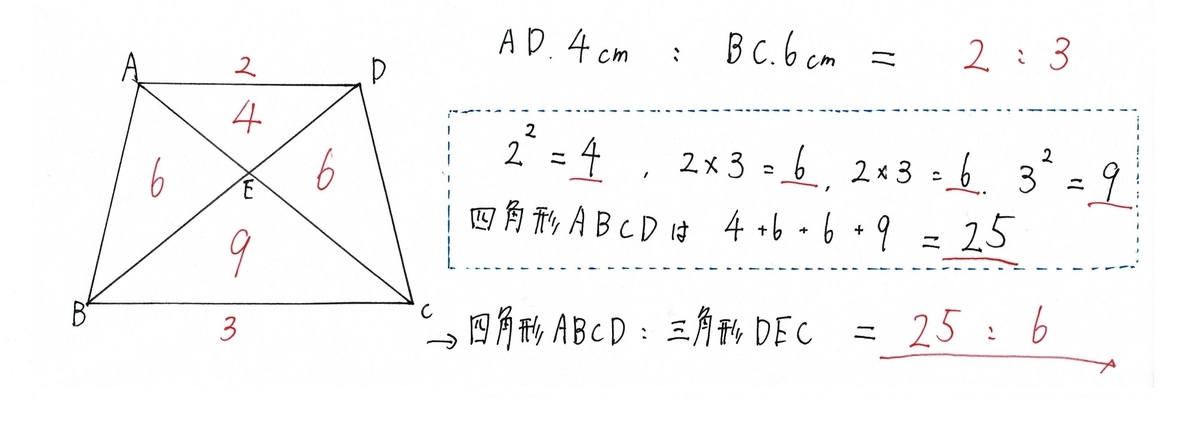 AD.4cm : BC.6cm = 2 : 3
A 2 D
4
6 6
E
9
B 3 C
2² = 4 , 2×3 = 6, 2×3 = 6. 3² = 9
四角形ABCDは 4+6+6+9 = 25
→四角形ABCD : 三角形DEC = 25 : 6